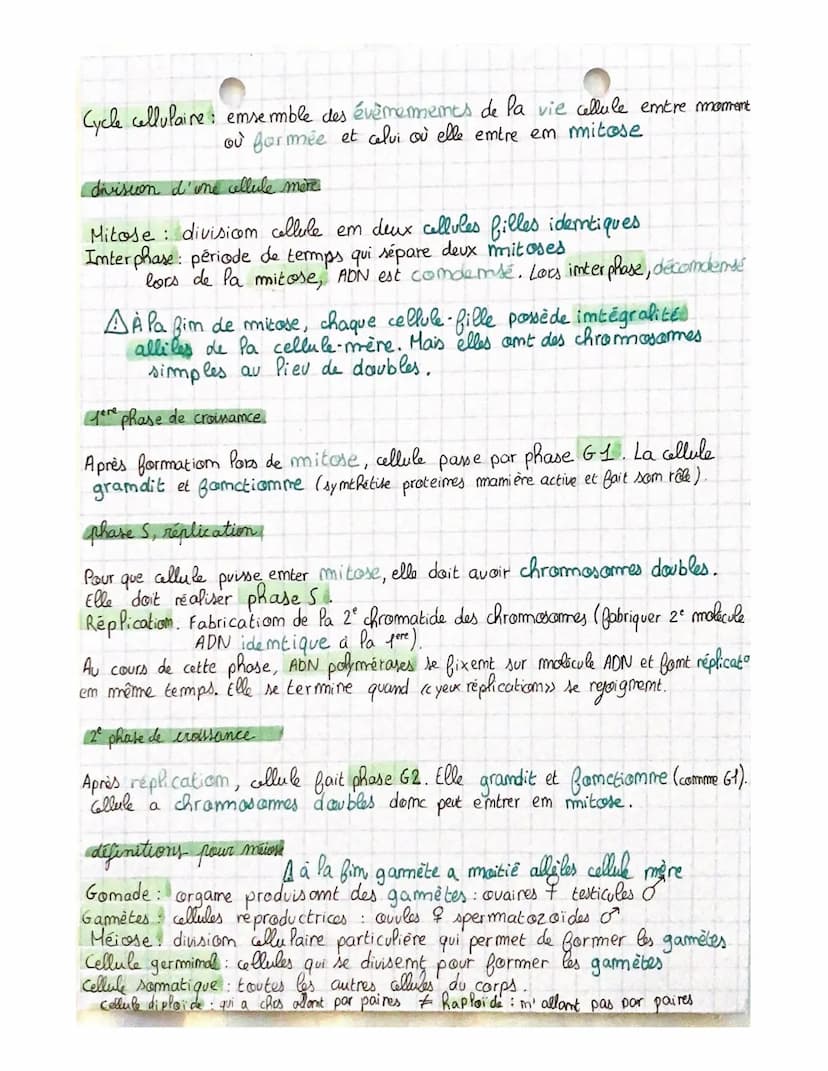 Cycle cellulaire : ensemble des évènements de la vie cellule entre moment
où formée et celui où elle entre en mitose
division d'une cellule mère
Mitose : division cellule en deux cellules filles identiques
Interphase : période de temps qui sépare deux mitoses
lors de la mitose, ADN est condensé. Lors interphase, décondensé
⚠ À la fin de mitose, chaque cellule-fille possède intégralité
allèles de la cellule-mère. Mais elles ont des chromosomes
simples au lieu de doubles.
1ère phase de croissance
Après formation lors de mitose, cellule passe par phase G1. La cellule
grandit et fonctionne (synthétise proteines manière active et fait son rôle).
phase S, réplication
Pour que cellule puisse enter mitose, elle doit avoir chromosomes doubles.
Elle doit réaliser phase S.
Réplication. Fabrication de la 2e chromatide des chromosomes (fabriquer 2e molécule
ADN identique à la 1ere).
Au cours de cette phase, ADN polymérases se fixent sur molécule ADN et font réplicat°
en même temps. Elle se termine quand «yeux réplication» se rejoignent.
2e phase de croissance
Après réplication, cellule fait phase G2. Elle grandit et fonctionne (comme G1).
Cellule a chromosomes doubles donc peut entrer en mitose.
définitions pour méiose
⚠ à la fin gamète a moitié allèles cellule mère
Gonade : organe produisant des gamètes : ovaires ♀ testicules ♂
Gamètes : cellules reproductrices : ovules ♀ spermatozoïdes ♂
Méiose : division cellulaire particulière qui permet de former les gamètes
Cellule germinal : cellules qui se divisent pour former les gamètes
Cellule somatique : toutes les autres cellules du corps.
Cellule diploïde : qui a chos allant par paires ≠ haploïde : n'allant pas par paires